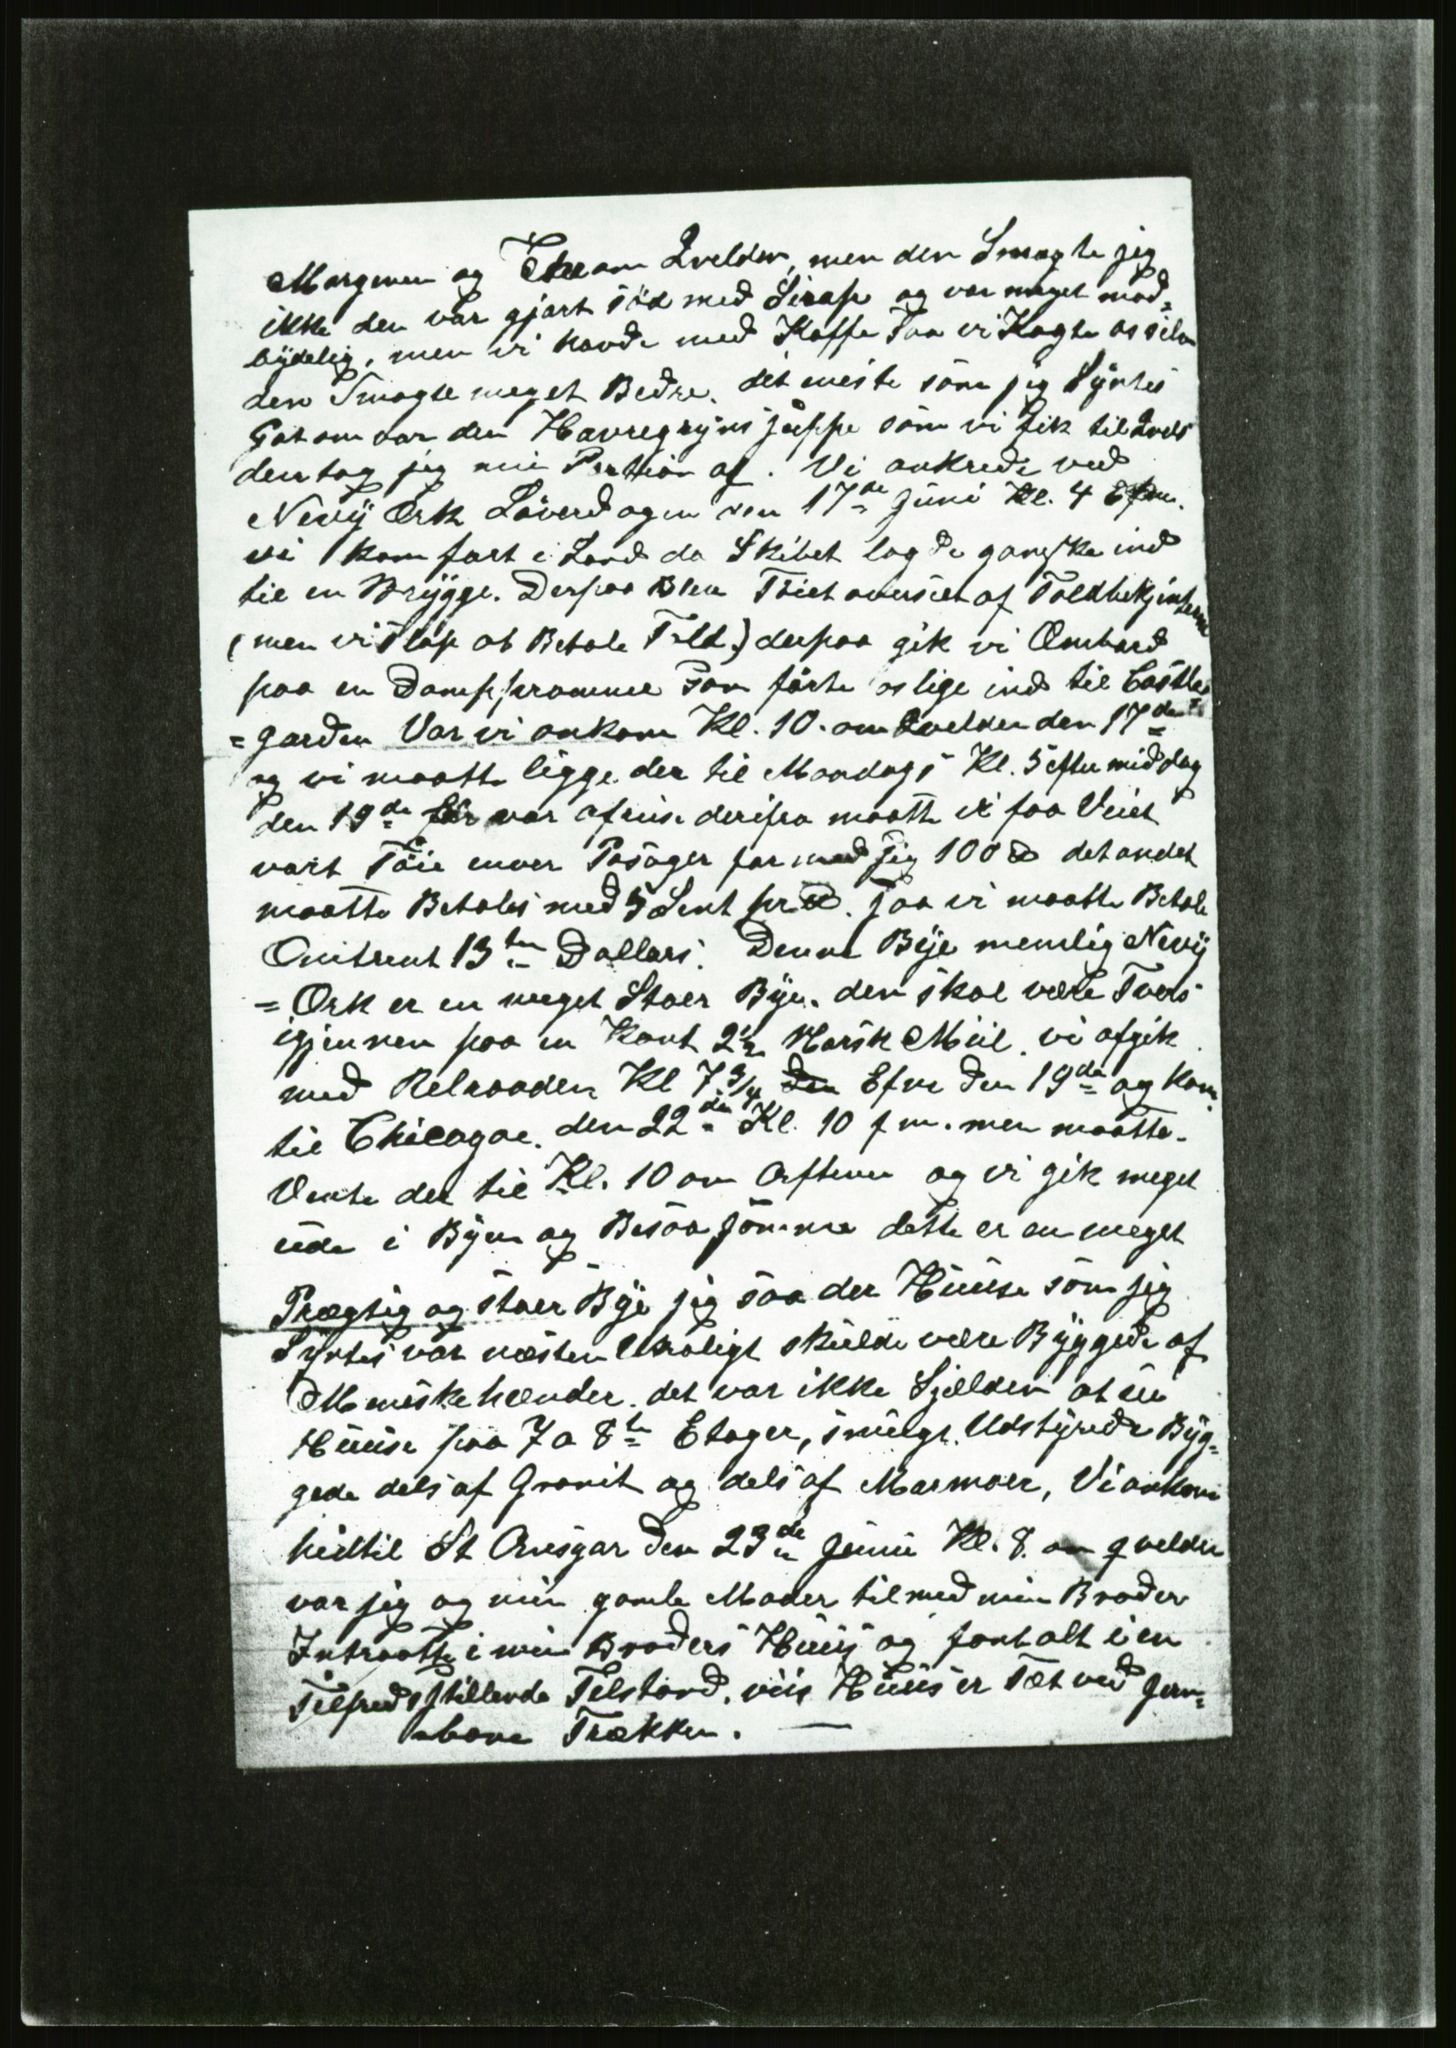 Morgenen og The om Qvelden, men den Smagte jeg
ikke den var gjort söd med Sirap og var meget mod=
bydelig, men vi havde med Kaffe saa vi Kogte os selv
den Smagte meget Bedre. det meste som jeg Syntes
Got om var den Havregryns suppe som vi fik til Qvels
den tog jeg min Portion af. Vi ankrede ved
Nevÿ Ørk Löverdagen den 17de Juni Kl. 4 Efm.
vi kom fort i Land da Skibet lagde ganske ind
til en Brygge. Derpaa Blev Töiet overset af Toldbetjentene
(men vi slap at Betale Told.) derpaa gik vi Ombord
paa en Damppramme som förte os lige ind til Castle
=garden Vor vi ankom Kl. 10. om Qvelden den 17de
og vi maatte ligge der til Mandags Kl. 5 eftermiddag
den 19de för vor afreise derifra maatte vi faa Veiet
vort Töie enver Pasager har med sig 100 ℔ det andet
maatte Betales med 5 Sent pr ℔. saa vi maatte Betale
Omtrent 13ten Dollars. Denne Bye nemlig Nevÿ
=Ørk er en meget Stoer Bye. den skal være Tvers
igjennem paa en Kant 2½ Norsk Miil. vi afgik
med Relraaden Kl 7¾ Efm den 19de og kom
til Chicagoe. den 22de Kl. 10 fm. men maatte
Vente der til Kl. 10 om Aftenen og vi gik meget
ude i Byen og Besaa somme dette er en meget
Prægtig og stoer Bye jeg saa der Huuse som jeg
Syntes var næsten Uraligt skulde være Byggede af
Meniskehænder. det var ikke Sjælden at see
Huuse paa 7 a 8te Etager, smukt Udstyrede Byg=
gede dels af Granit og dels af Marmoer, Vi ankom
hidtil St Ansgar den 23de Juni Kl. 8. om qvelden
var jeg og min gamle Moder tilmed min Broder
Intraatte i min Broders Huus og fant alt i en
Tilfredsstillende Tilstand. vis Huus er Tæt ved Jern=
bane Trækken. —